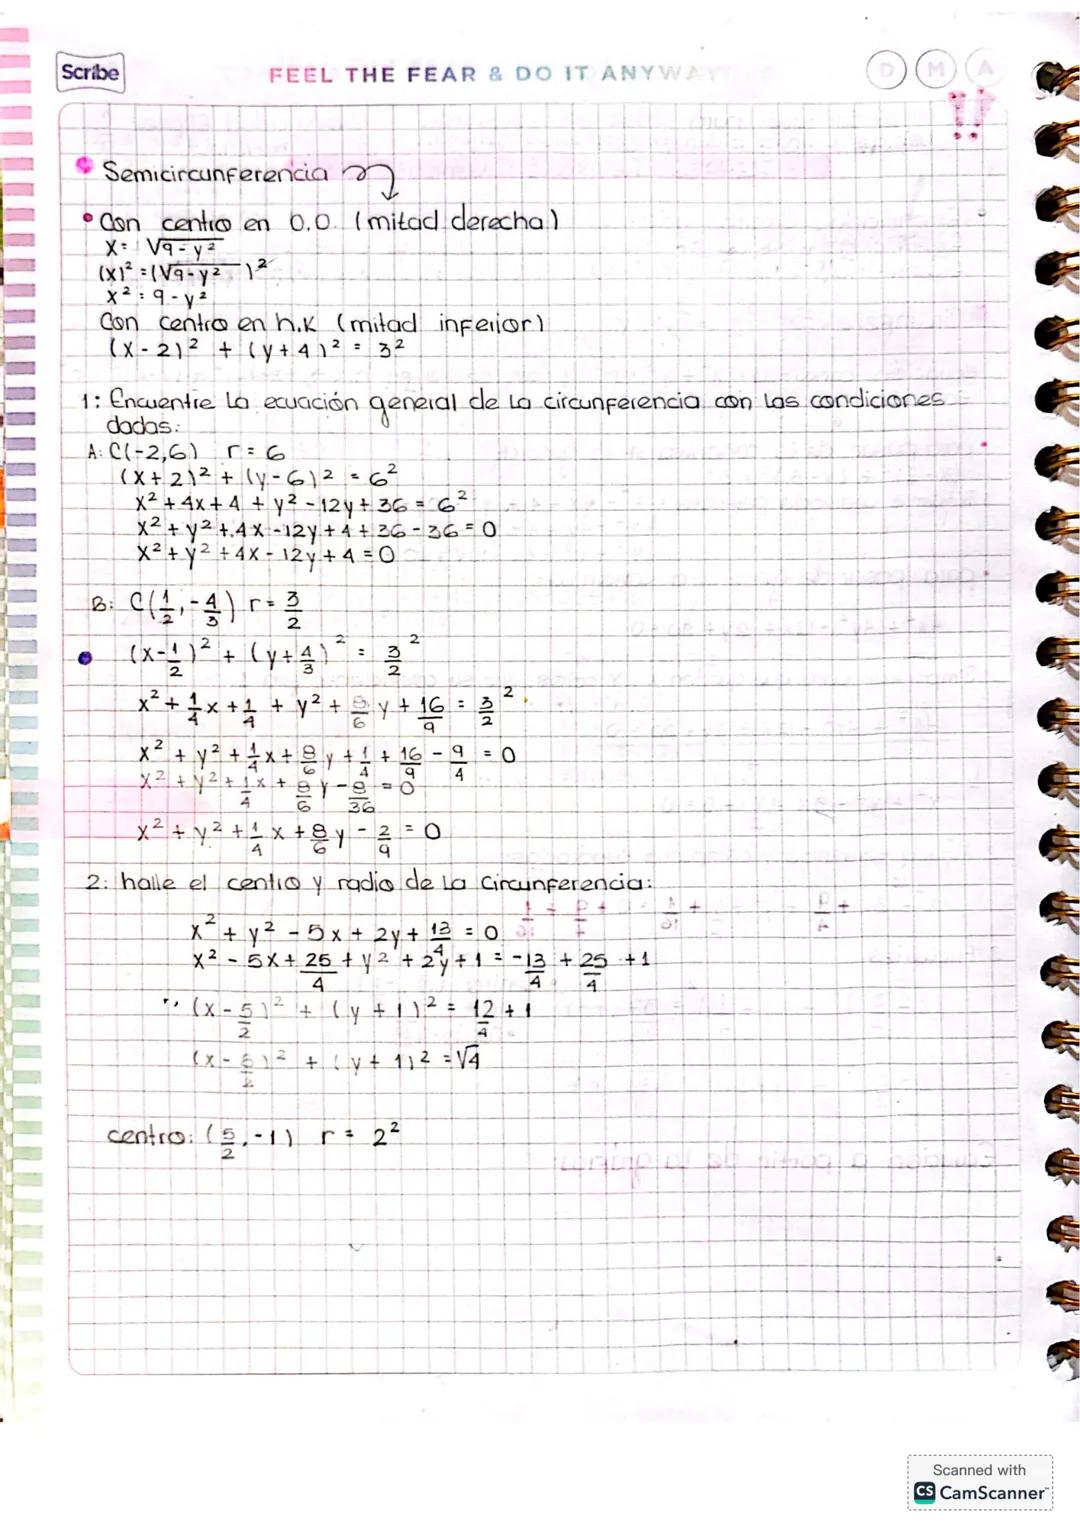 Scribe
FEEL THE FEAR & DO IT ANYWAY
D M A
!!
Semicircunferencia
• Con centro en 0,0. (mitad derecha)
x = √9 - y²
(x)² = (√9 - y²)²
x² = 9 - y²
Con centro en h.k (mitad inferior)
(x - 2)² + (y + 4)² = 3²
1: Encuentre La ecuación general de La circunferencia con Las condiciones
dadas:
A: C(-2,6) r = 6
(x + 2)² + (y - 6)² = 6²
x² + 4x + 4 + y² - 12y + 36 = 6²
x² + y² + 4x - 12y + 4 + 36 - 36 = 0
x² + y² + 4x - 12y + 4 = 0
B: C(1/2, -4/3) r = 3/2
(x - 1/2)² + (y + 4/3)² = 3/2²
x² + 1/4 x + 1/4 + y² + 8/6 y + 16/9 = 3/2²
x² + y² + 1/4 x + 8/6 y + 1/4 + 16/9 - 9/4 = 0
x² + y² + 1/4 x + 8/6 y - 8/36 = 0
x² + y² + 1/4 x + 8/6 y - 2/9 = 0
2: halle el centro y radio de La Circunferencia:
x² + y² - 5x + 2y + 13/4 = 0
x² - 5x + 25/4 + y² + 2y + 1 = -13/4 + 25/4 + 1
(x - 5/2)² + (y + 1)² = 12/4 + 1
(x - 5/2)² + (y + 1)² = √4
centro: (5/2, -1) r = 2²
Scanned with
CS CamScanner